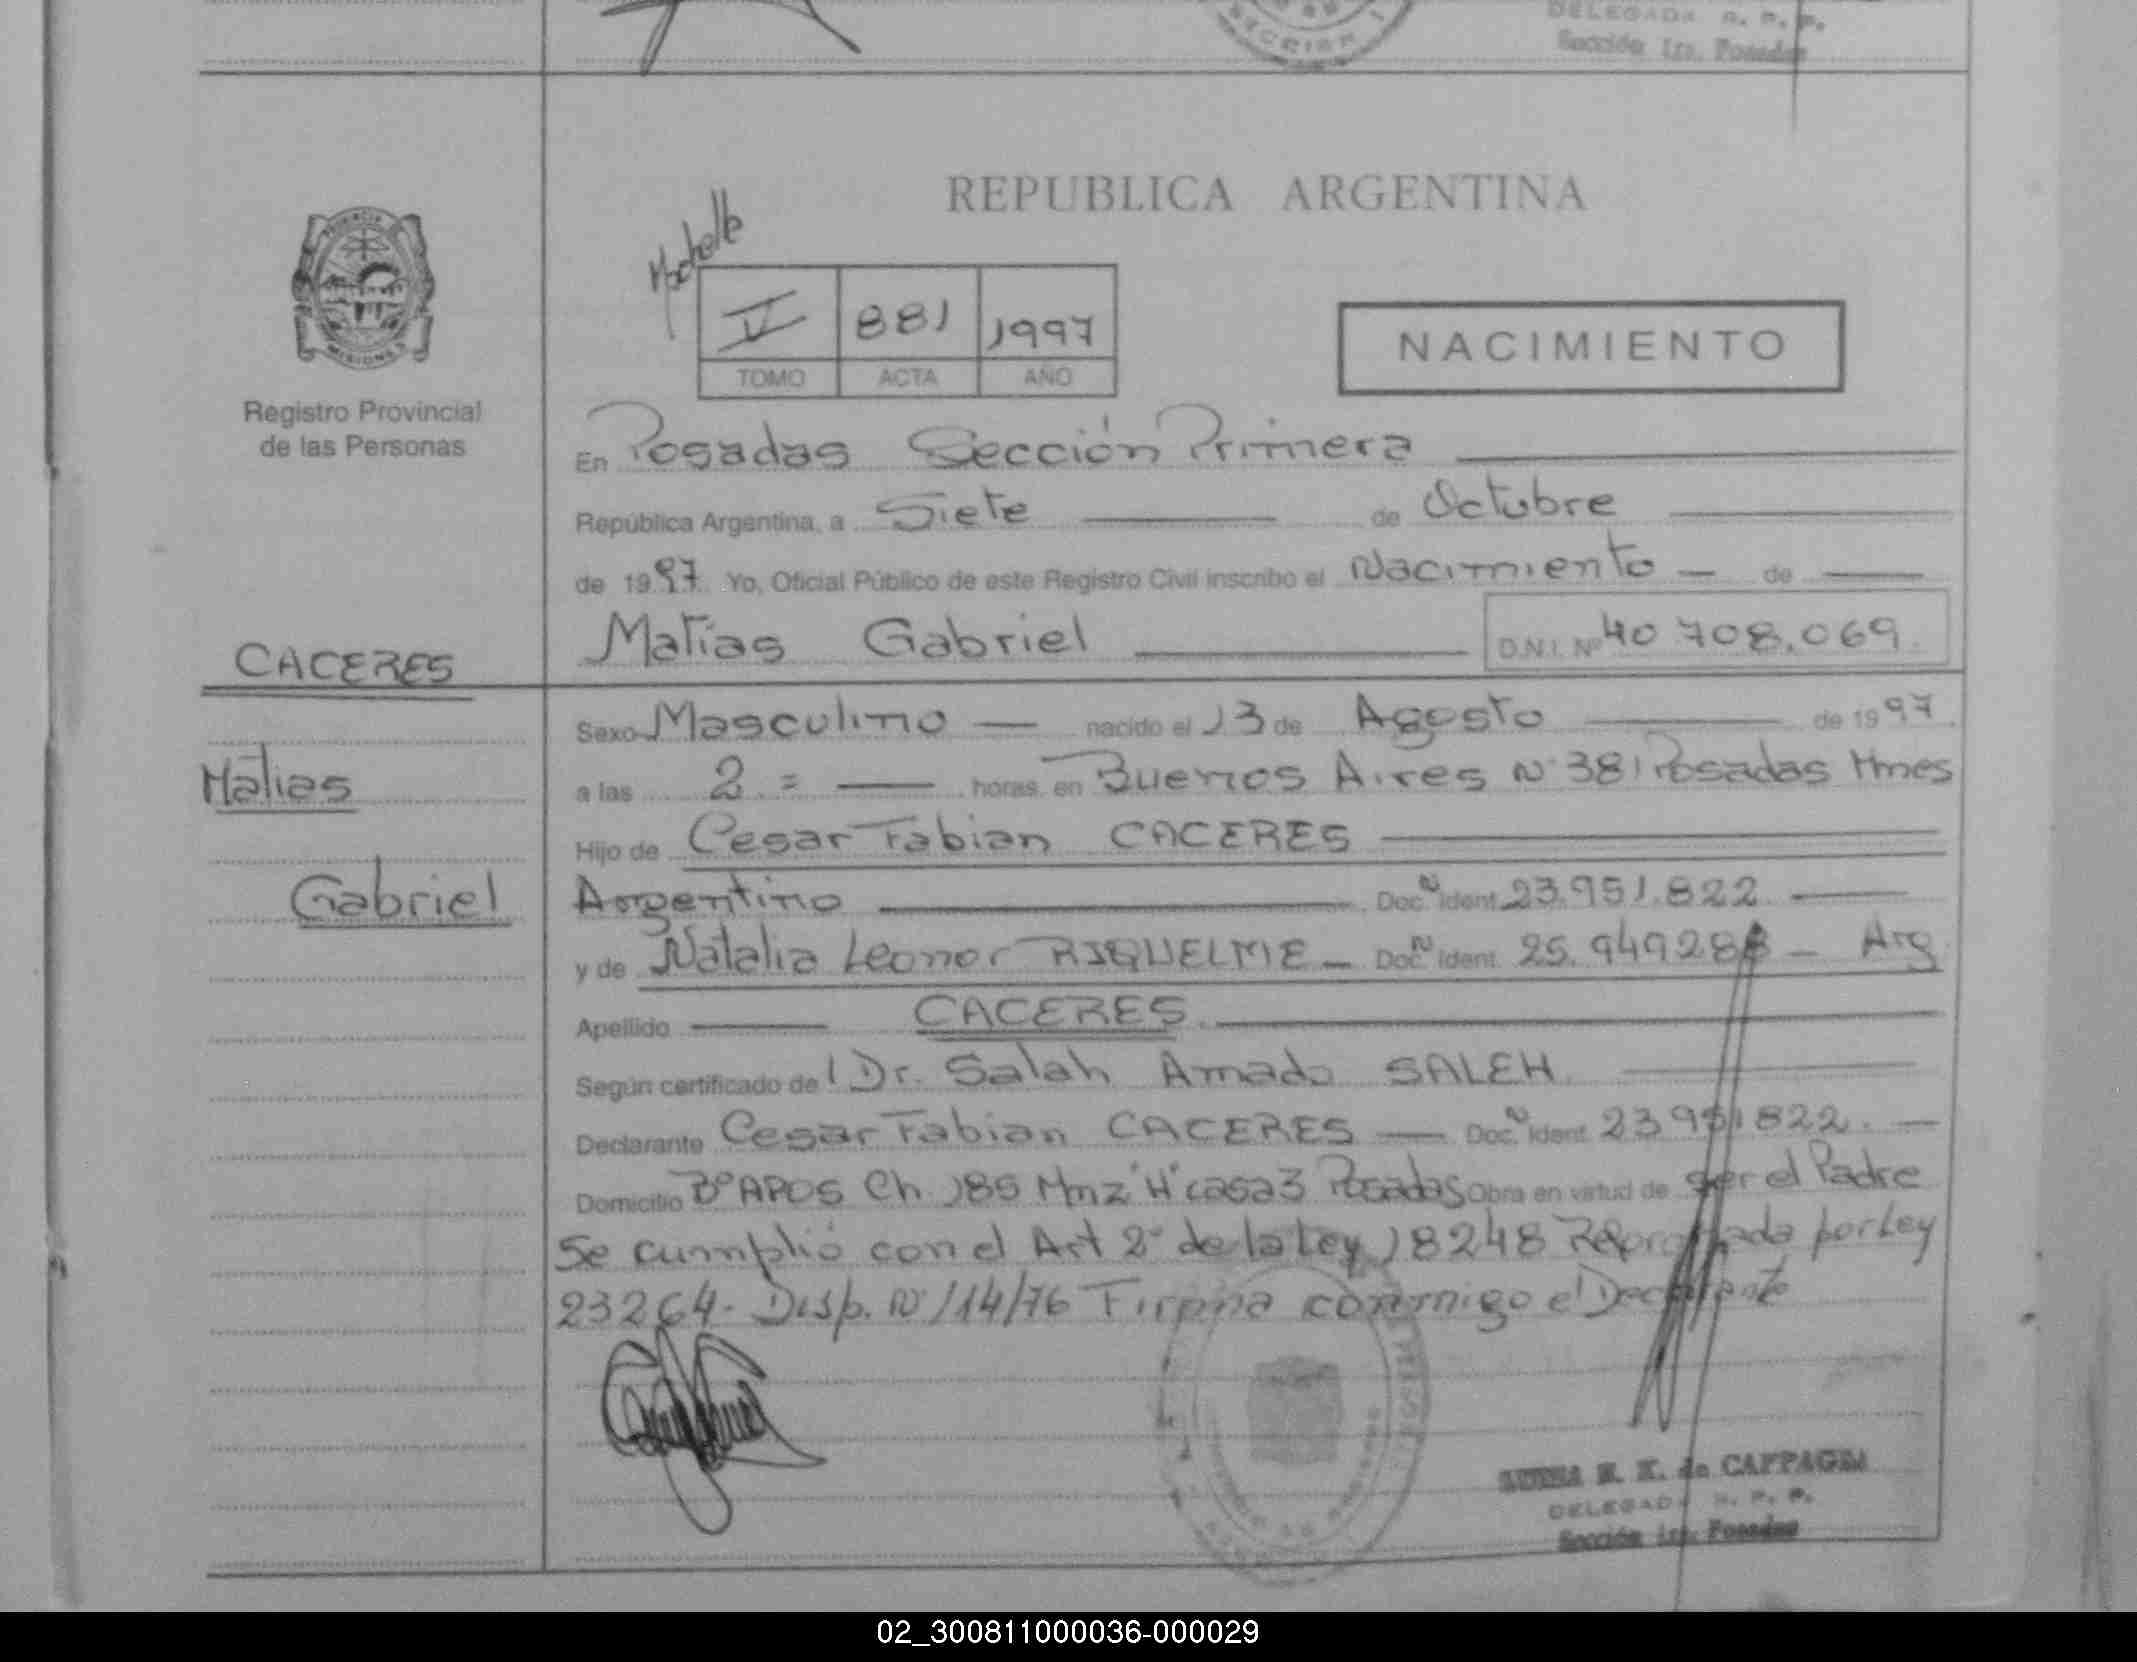 DELEGADA R. P. P.
Sección 1ra. Posadas
REPUBLICA ARGENTINA
PROVINCIA
MISIONES
V 881 1997
TOMO ACTA AÑO
NACIMIENTO
Registro Provincial
de las Personas
En Posadas Sección Primera
República Argentina, a Siete de Octubre
de 1997 Yo, Oficial Público de este Registro Civil inscribo el Nacimiento de
CACERES
Matías Gabriel D.N.I. Nº 40 708.069
Sexo Masculino nacido el 13 de Agosto de 1997
Matias
a las 2 = horas, en Buenos Aires Nº 381 Posadas Mnes
Hijo de Cesar Fabian CACERES
Gabriel
Argentino Doc. Ident. 23.951.822
y de Natalia Leonor RIQUELME Doc. Ident. 25.949288 Arg
Apellido CACERES
Según certificado de l Dr. Salah Amado SALEH
Declarante Cesar Fabian CACERES Doc. Ident. 23951822.
Domicilio Bº APOS Ch 185 Mnz "H" casa 3 Posadas Obra en virtud de ser el Padre
Se cumplió con el Art 2º de la Ley 18248 por Ley
23264- Disp. Nº 114/76 Firma conmigo el Declarante
DELEGADA R. P. P.
Sección 1ra. Posadas
02_300811000036-000029